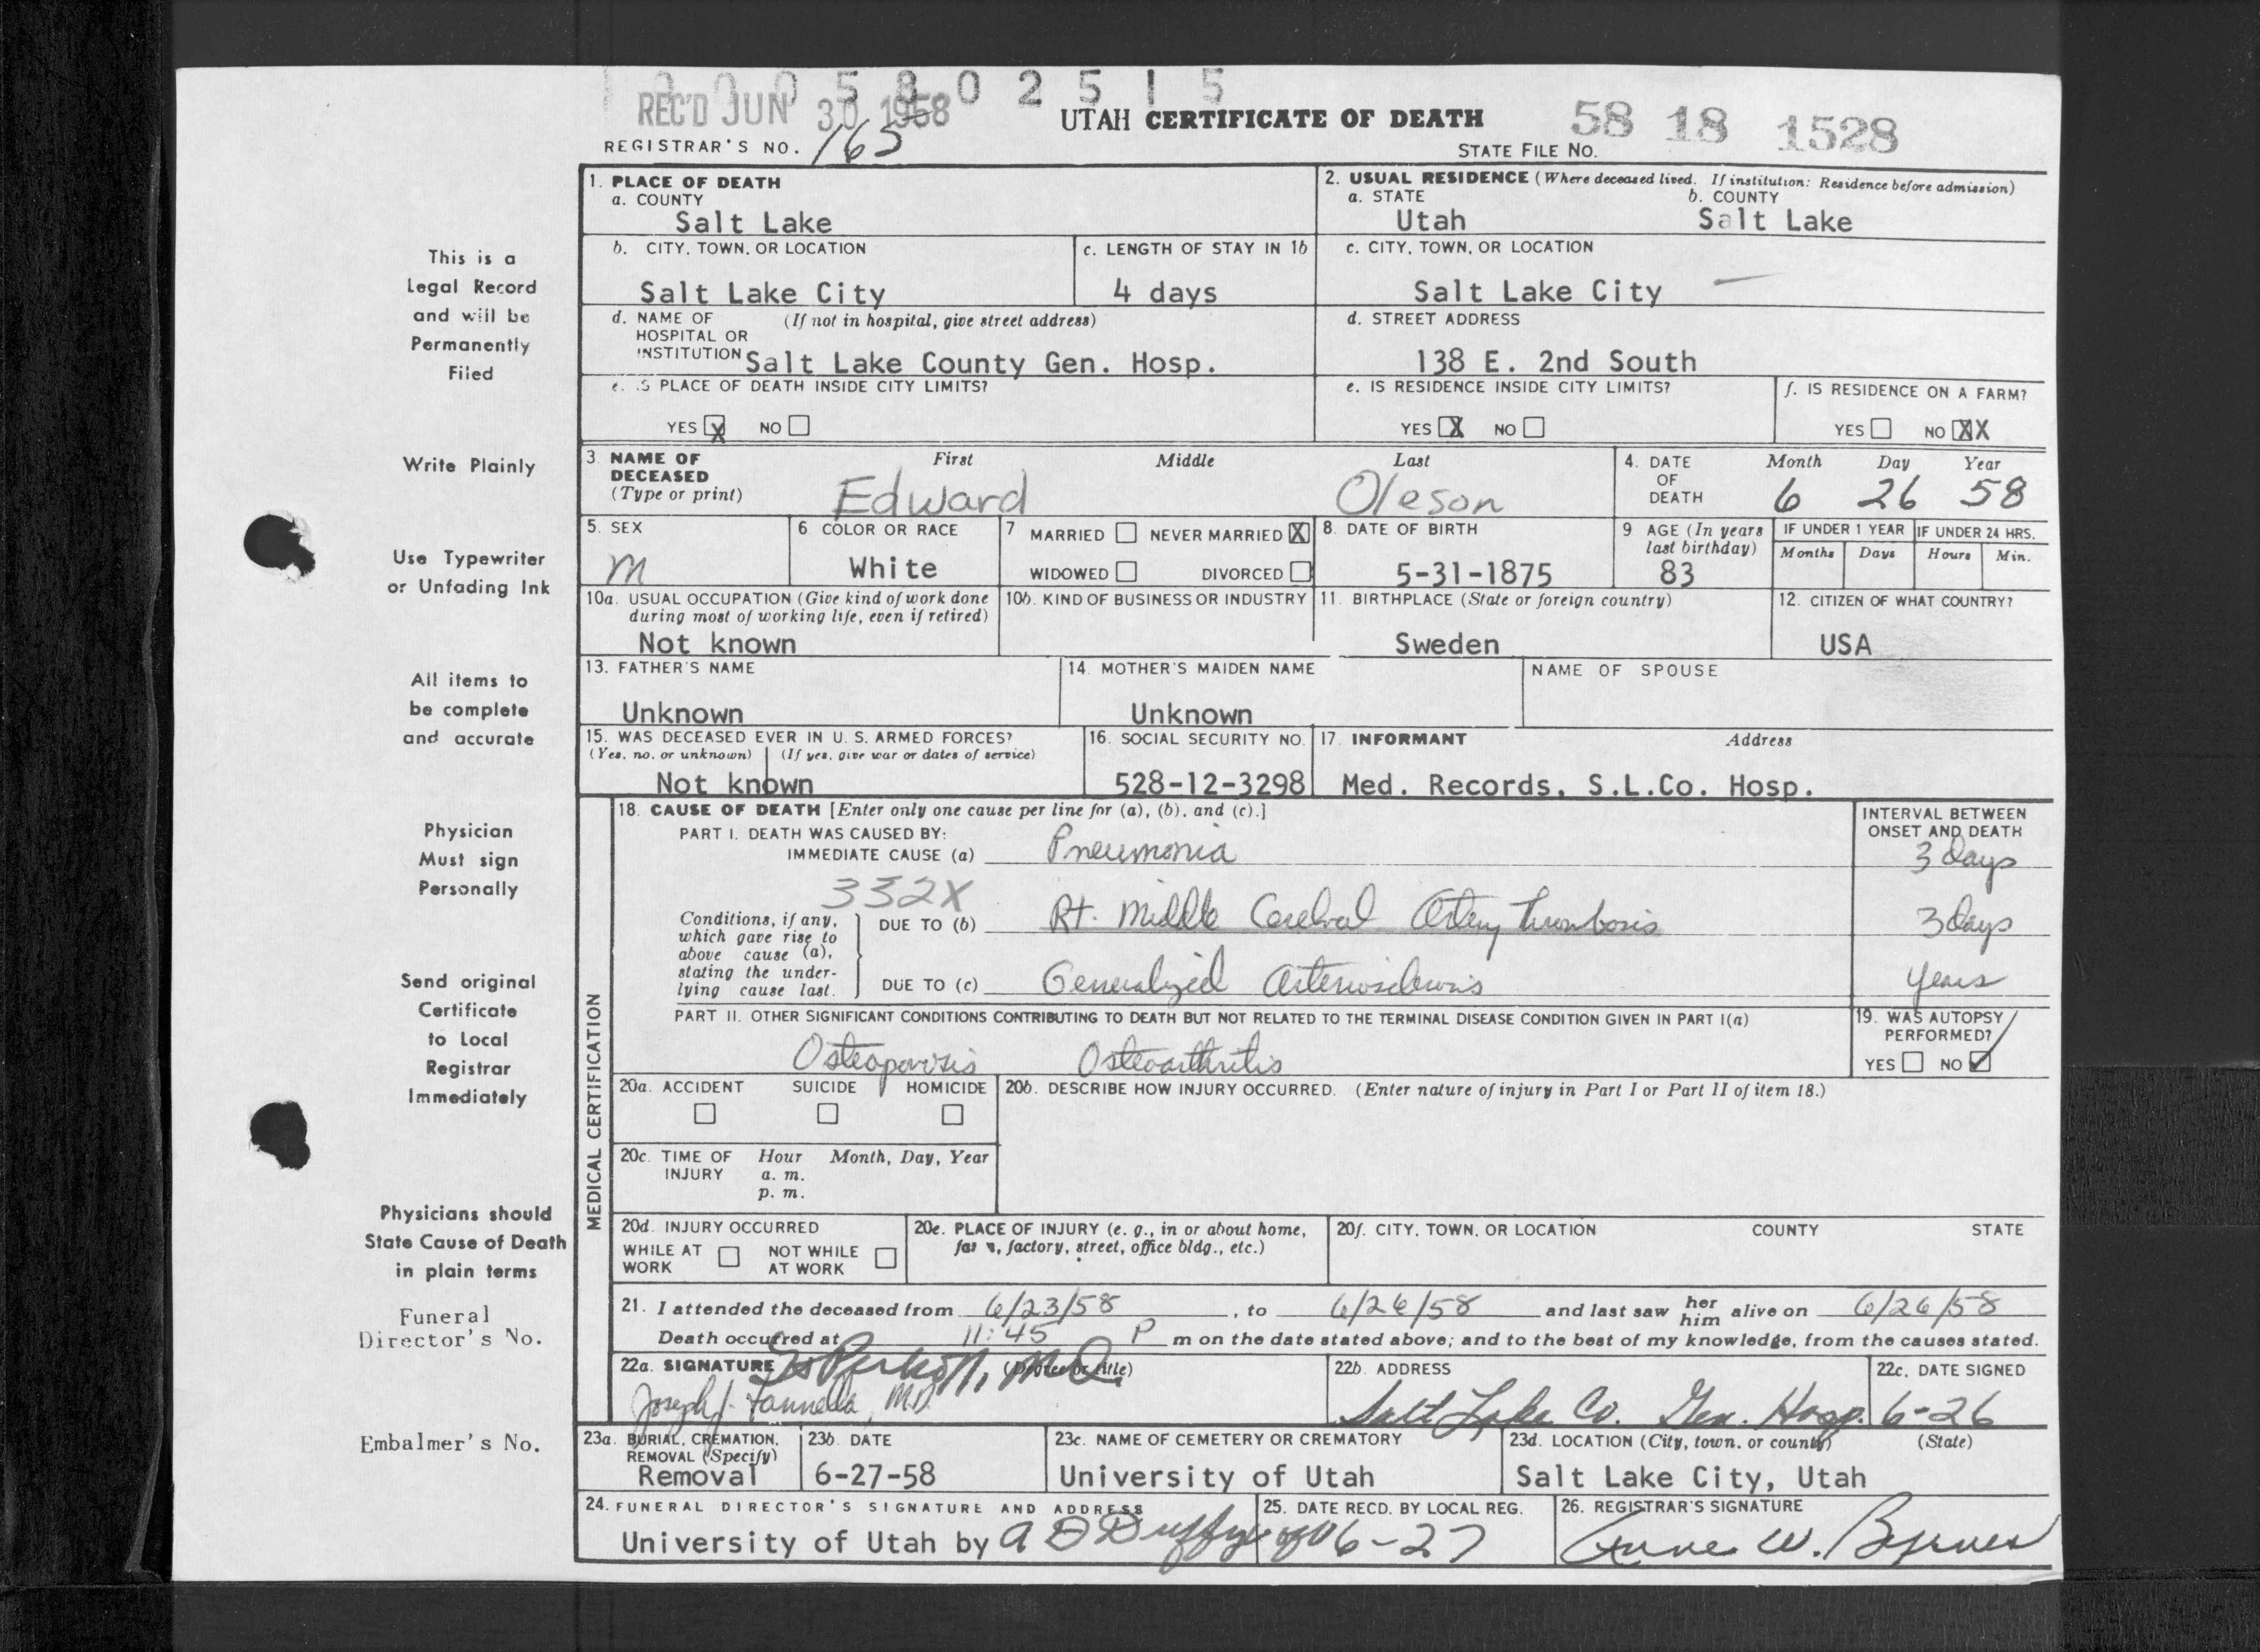 1 0 0 5 8 0 2 5 1 5
REC'D JUN 30 1958
UTAH CERTIFICATE OF DEATH
58 18 1528
REGISTRAR'S NO. 165
STATE FILE NO.
1. PLACE OF DEATH
a. COUNTY
Salt Lake
2. USUAL RESIDENCE (Where deceased lived. If institution: Residence before admission)
a. STATE b. COUNTY
Utah Salt Lake
b. CITY, TOWN, OR LOCATION
Salt Lake City
c. LENGTH OF STAY IN 1b
4 days
c. CITY, TOWN, OR LOCATION
Salt Lake City
d. NAME OF (If not in hospital, give street address)
HOSPITAL OR
INSTITUTION Salt Lake County Gen. Hosp.
d. STREET ADDRESS
138 E. 2nd South
e. IS PLACE OF DEATH INSIDE CITY LIMITS?
YES X NO
e. IS RESIDENCE INSIDE CITY LIMITS?
YES X NO
f. IS RESIDENCE ON A FARM?
YES NO XX
3. NAME OF First Middle Last
DECEASED
(Type or print) Edward Oleson
4. DATE Month Day Year
OF
DEATH 6 26 58
5. SEX
M
6 COLOR OR RACE
White
7 MARRIED NEVER MARRIED X
WIDOWED DIVORCED
8. DATE OF BIRTH
5-31-1875
9 AGE (In years
last birthday)
83
IF UNDER 1 YEAR
Months Days
IF UNDER 24 HRS.
Hours Min.
10a. USUAL OCCUPATION (Give kind of work done
during most of working life, even if retired)
Not known
10b. KIND OF BUSINESS OR INDUSTRY
11. BIRTHPLACE (State or foreign country)
Sweden
12. CITIZEN OF WHAT COUNTRY?
USA
13. FATHER'S NAME
Unknown
14. MOTHER'S MAIDEN NAME
Unknown
NAME OF SPOUSE
15. WAS DECEASED EVER IN U. S. ARMED FORCES?
(Yes, no, or unknown) (If yes, give war or dates of service)
Not known
16. SOCIAL SECURITY NO.
528-12-3298
17. INFORMANT Address
Med. Records, S.L.Co. Hosp.
MEDICAL CERTIFICATION
18. CAUSE OF DEATH [Enter only one cause per line for (a), (b), and (c).]
PART I. DEATH WAS CAUSED BY:
IMMEDIATE CAUSE (a) Pneumonia
INTERVAL BETWEEN
ONSET AND DEATH
3 days
332X
Conditions, if any,
which gave rise to
above cause (a),
stating the under-
lying cause last.
DUE TO (b) Rt. Middle Cerebral Artery Thrombosis 3 days
DUE TO (c) Generalized Arteriosclerosis years
PART II. OTHER SIGNIFICANT CONDITIONS CONTRIBUTING TO DEATH BUT NOT RELATED TO THE TERMINAL DISEASE CONDITION GIVEN IN PART I(a)
Osteoporosis Osteoarthritis
19. WAS AUTOPSY
PERFORMED?
YES NO
20a. ACCIDENT SUICIDE HOMICIDE
20b. DESCRIBE HOW INJURY OCCURRED. (Enter nature of injury in Part I or Part II of item 18.)
20c. TIME OF Hour Month, Day, Year
INJURY a. m.
p. m.
20d. INJURY OCCURRED
WHILE AT NOT WHILE
WORK AT WORK
20e. PLACE OF INJURY (e. g., in or about home,
farm, factory, street, office bldg., etc.)
20f. CITY, TOWN, OR LOCATION COUNTY STATE
21. I attended the deceased from 6/23/58, to 6/26/58 and last saw her him alive on 6/26/58
Death occurred at 11:45 P m on the date stated above; and to the best of my knowledge, from the causes stated.
22a. SIGNATURE (Degree or title) M.D.
Joseph J. M.D.
22b. ADDRESS
Salt Lake Co. Gen. Hosp.
22c. DATE SIGNED
6-26
23a. BURIAL, CREMATION,
REMOVAL (Specify)
Removal
23b. DATE
6-27-58
23c. NAME OF CEMETERY OR CREMATORY
University of Utah
23d. LOCATION (City, town, or county) (State)
Salt Lake City, Utah
24. FUNERAL DIRECTOR'S SIGNATURE AND ADDRESS
University of Utah by A D Duffy
25. DATE RECD. BY LOCAL REG.
6-27
26. REGISTRAR'S SIGNATURE
Anne W. Byrnes
This is a
Legal Record
and will be
Permanently
Filed
Write Plainly
Use Typewriter
or Unfading Ink
All items to
be complete
and accurate
Physician
Must sign
Personally
Send original
Certificate
to Local
Registrar
Immediately
Physicians should
State Cause of Death
in plain terms
Funeral
Director's No.
Embalmer's No.